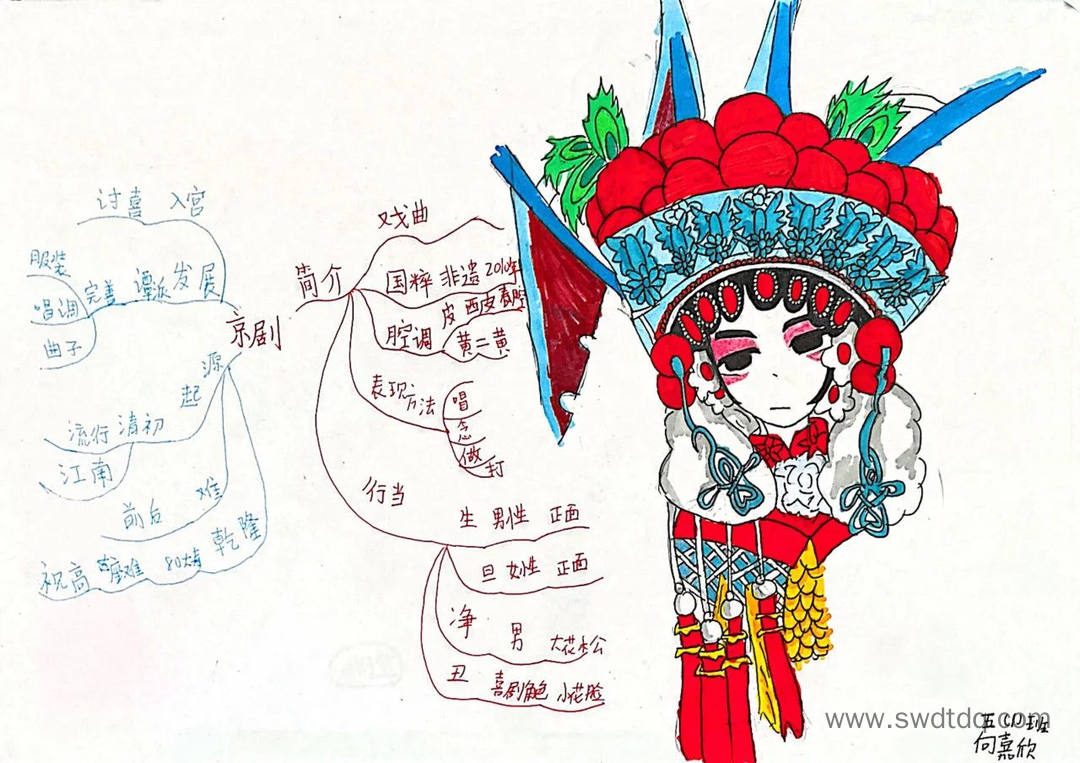 京剧
简介
戏曲
国粹 非遗 2010年
腔调
皮 西皮
黄 二黄
表现方法
唱
念
做
打
行当
生 男性 正面
旦 女性 正面
净 男
丑 喜剧角色 小花脸
发展
讨喜 入宫
完善
服装
唱调
曲子
起源
清初 流行
江南
前后
乾隆 80大
祝高
www.swdtdq.com
五(1)班
向嘉欣